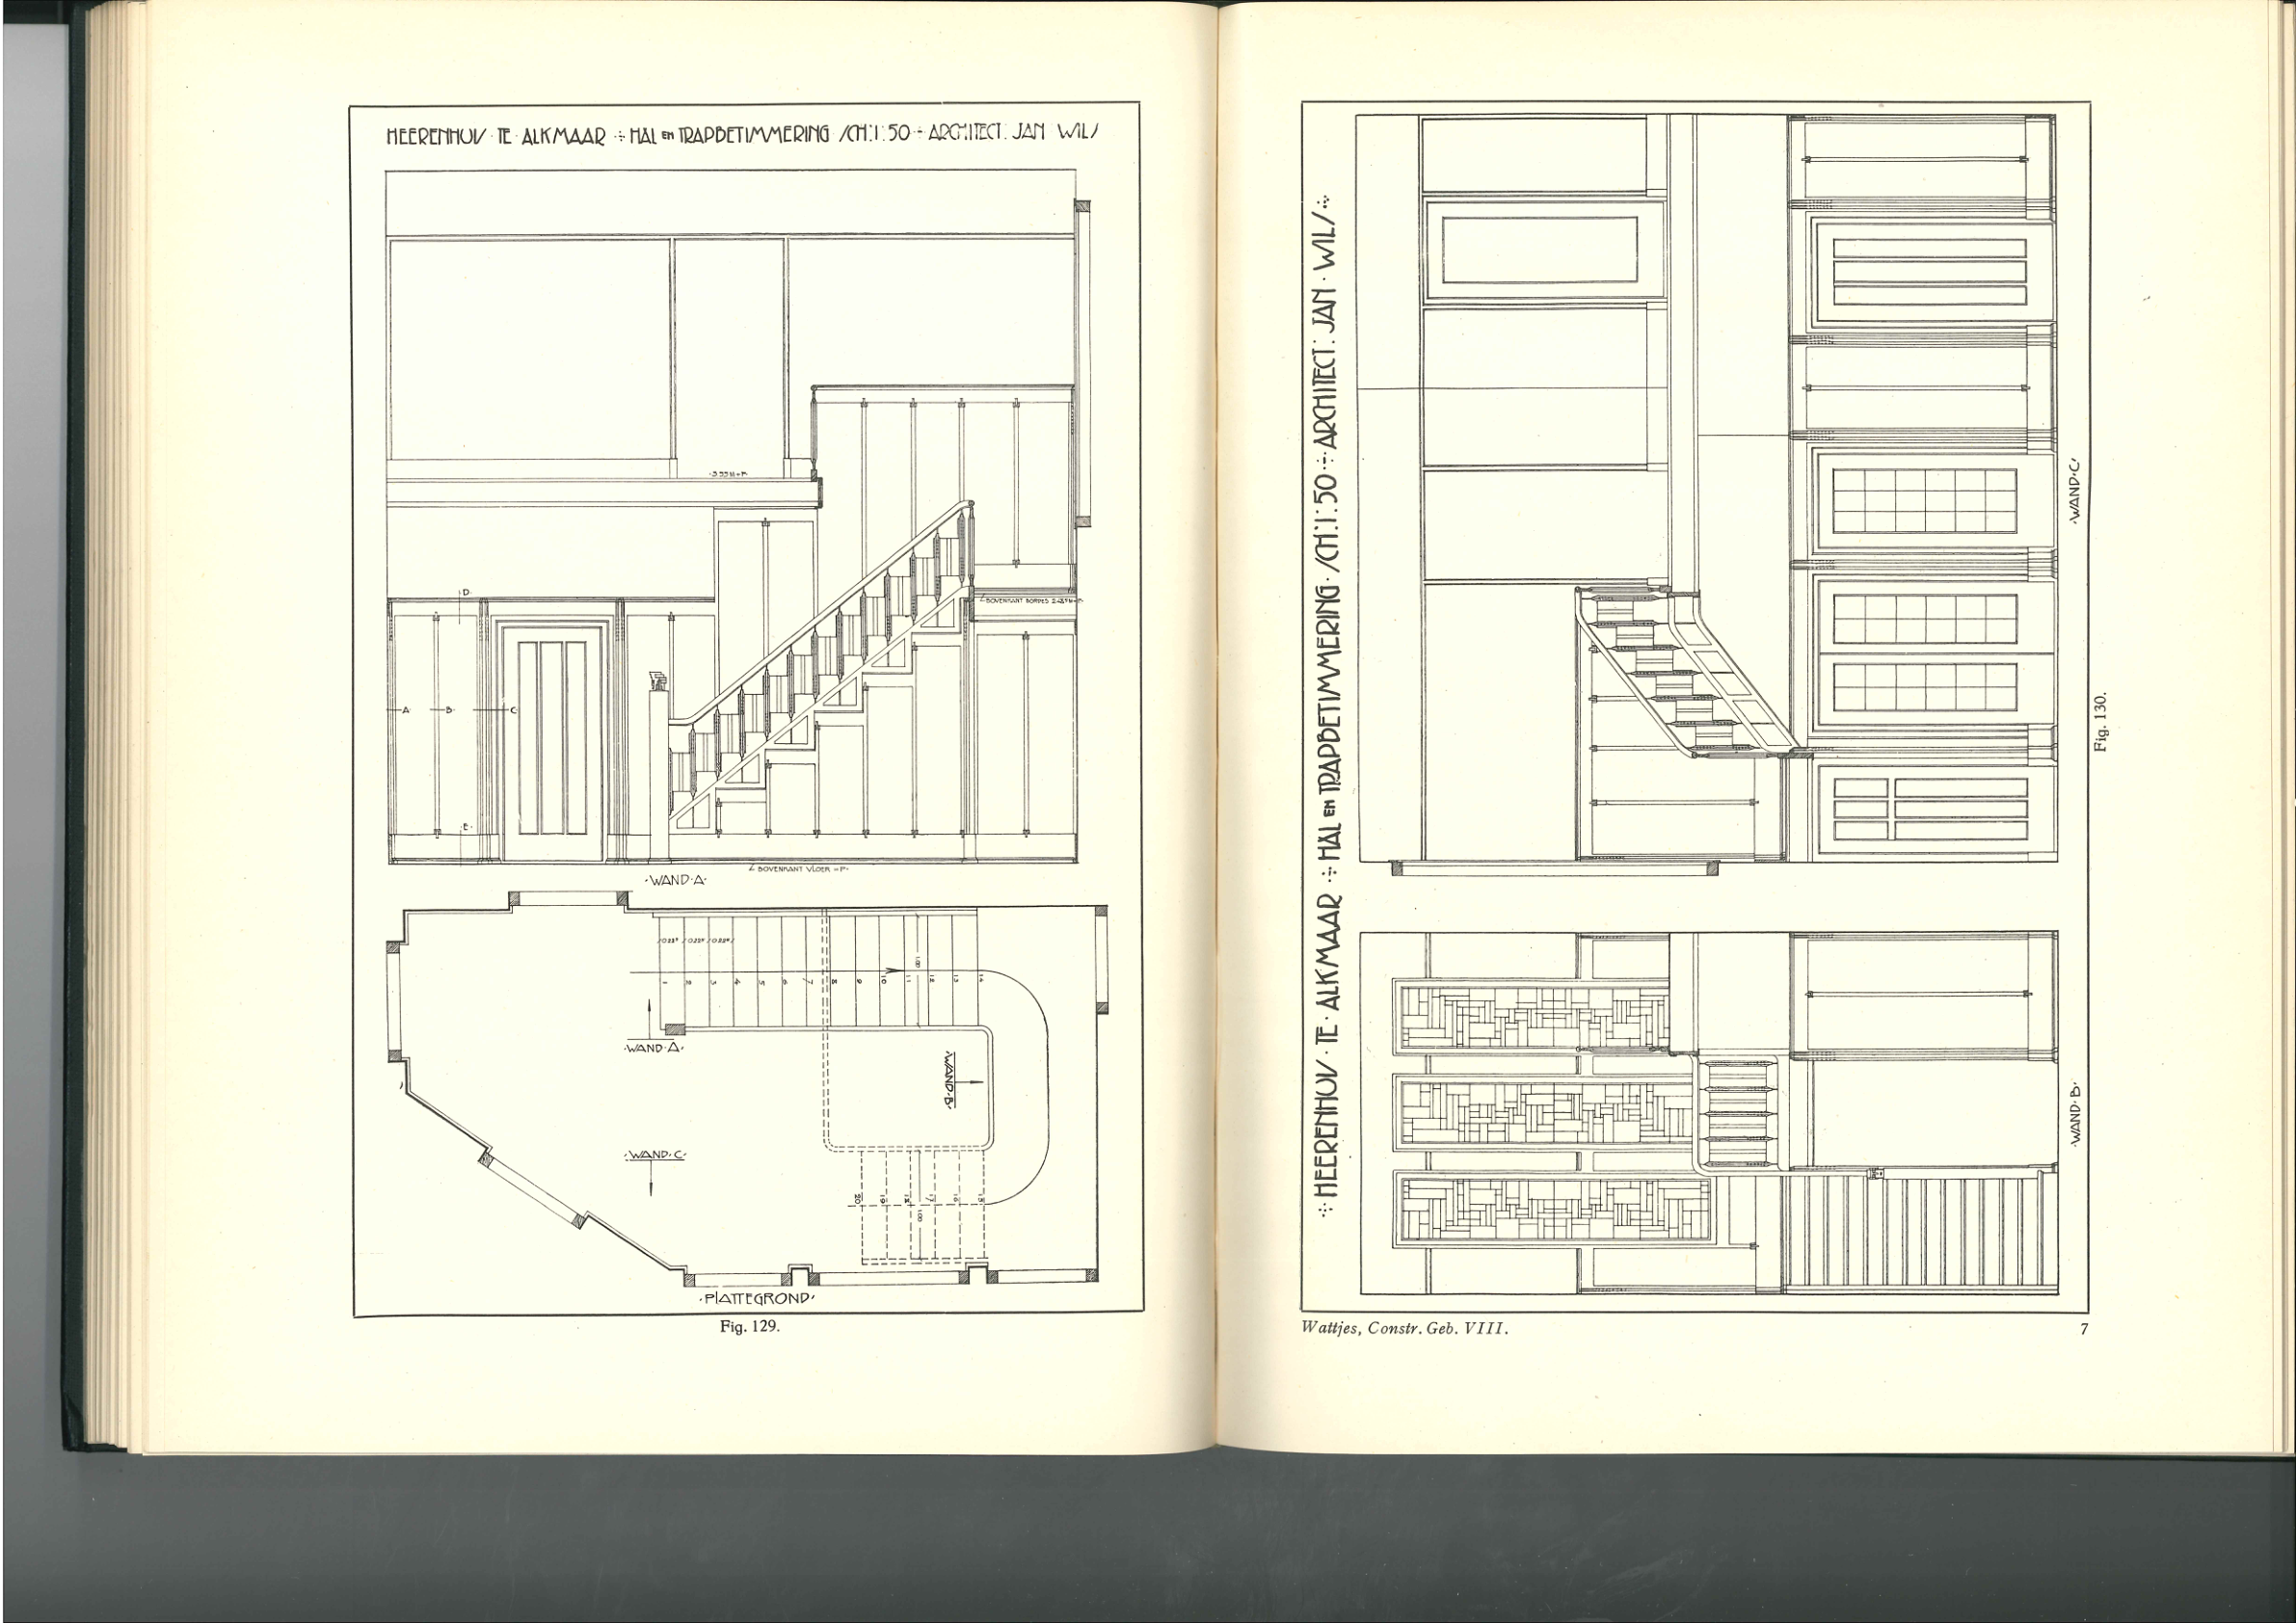 HEERENHUIS · TE · ALKMAAR ·:· HAL EN TRAPBETIMMERING /CH: 1:50 ·:· ARCHITECT: JAN WILS
D
A
B
C
E
BOVENKANT VLOER = P
·WAND·A·
1 2 3 4 5 6 7 8 9 10 11 12 13 14
100
·WAND·A·
·WAND·B·
·WAND·C·
20 19 18 17 16 15
100
·PLATTEGROND·
Fig. 129.
·:· HEERENHUIS · TE · ALKMAAR ·:· HAL EN TRAPBETIMMERING · SCH: 1:50 ·:· ARCHITECT: JAN · WILS ·:·
·WAND·C·
·WAND·B·
Fig. 130.
Wattjes, Constr. Geb. VIII.
7